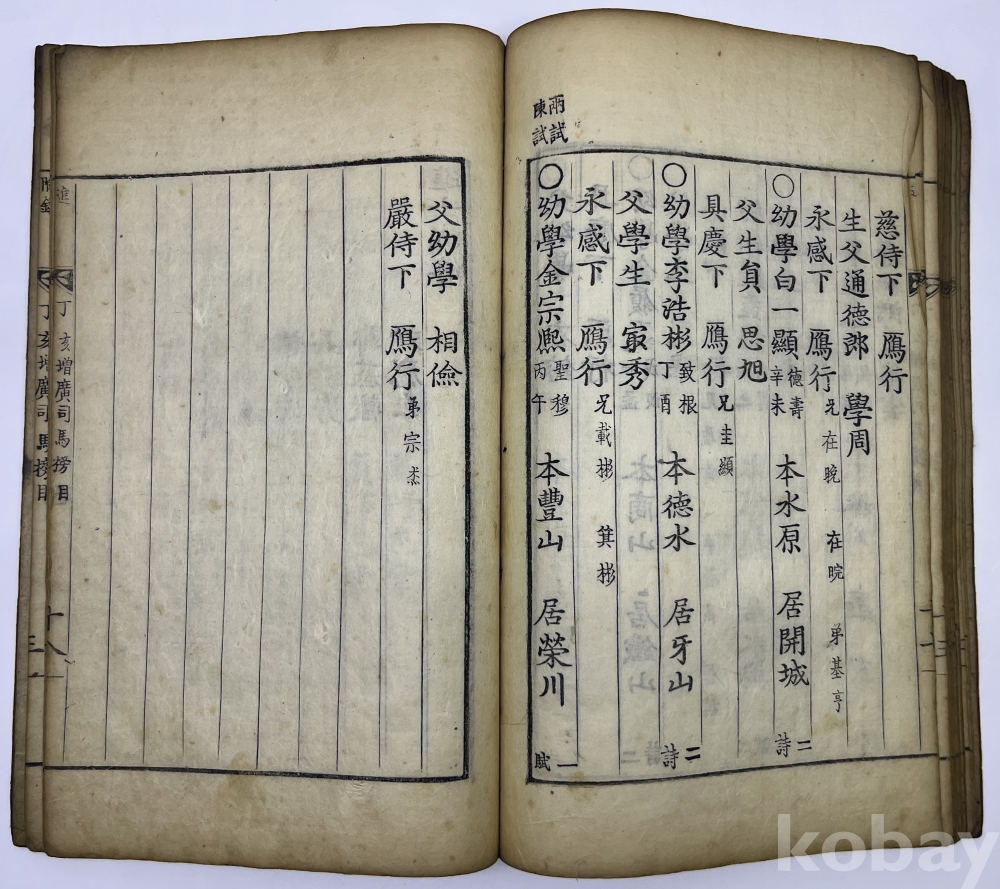 慈侍下 鴈行
生父通德郎 學周
永感下 鴈行 兄在晩 在晥 弟基亨
○幼學白一顯 德壽 辛未 本水原 居開城 二詩
父生員 思旭
具慶下 鴈行 兄圭顯
○幼學李浩彬 致根 丁酉 本德水 居牙山 二詩
父學生 㝡秀
永感下 鴈行 兄載彬 箕彬
兩試
陳試
○幼學金宗熙 聖穆 丙午 本豐山 居榮川 一賦
父幼學 相儉
嚴侍下 鴈行 弟宗烋
進
丁亥增廣司馬榜目
丁亥增廣司馬榜目
十八
kobay